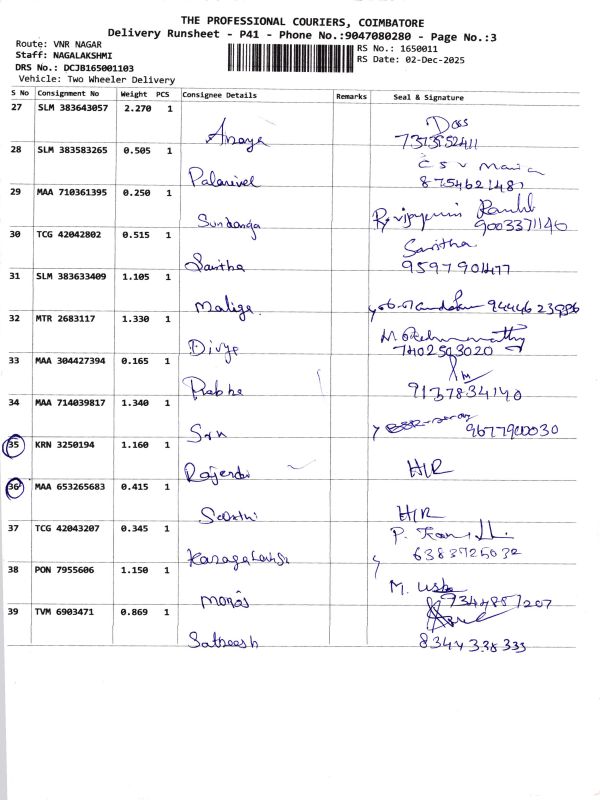 THE PROFESSIONAL COURIERS, COIMBATORE
Delivery Runsheet - P41 - Phone No.:9047080280 - Page No.:3
Route: VNR NAGAR
Staff: NAGALAKSHMI
DRS No.: DCJB165001103
Vehicle: Two Wheeler Delivery
RS No.: 1650011
RS Date: 02-Dec-2025
S No Consignment No Weight PCS Consignee Details Remarks Seal & Signature
27 SLM 383643057 2.270 1
Anaya Dass
28 SLM 383583265 0.505 1
Palanivel 8754621487
29 MAA 710361395 0.250 1
9003371140
30 TCG 42042802 0.515 1
Savitha Savitha
9597901477
31 SLM 383633409 1.105 1
Maliga
32 MTR 2683117 1.330 1
Divya
7402503020
33 MAA 304427394 0.165 1
Prabha 9137834140
34 MAA 714039817 1.340 1
9677900030
35 KRN 3250194 1.160 1
H/R
36 MAA 653265683 0.415 1
H/R
37 TCG 42043207 0.345 1
P.
6383725032
38 PON 7955606 1.150 1
M. Usha
7344857207
39 TVM 6903471 0.869 1
Satheesh 8344338333